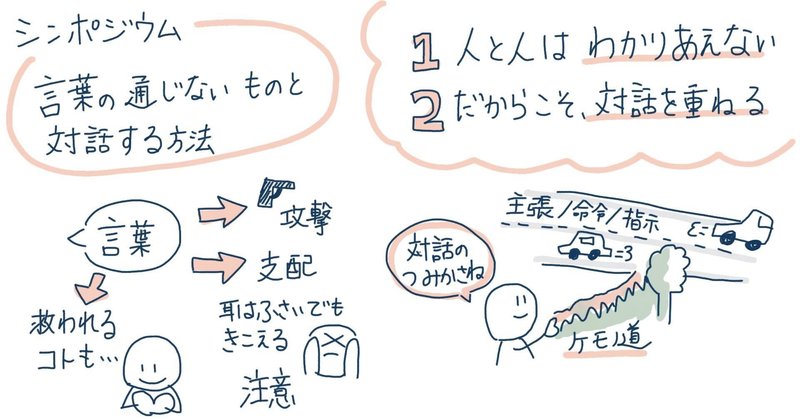 シンポジウム
言葉の通じないものと
対話する方法
1 人と人は わかりあえない
2 だからこそ、対話を重ねる
言葉
攻撃
支配
救われる
コトも…
耳はふさいでも
きこえる
注意
対話の
つみかさね
主張/命令/指示
ケモノ道